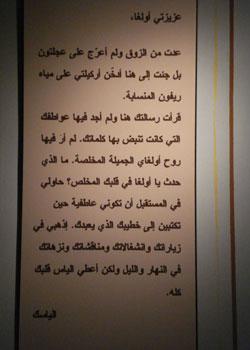 عزيزتي أولغا،
عدت من الزوق ولم أعرّج على عجلتون
بل جئت إلى هنا أدخّن أركيلتي على مياه
ريفون المنسابة.
قرأت رسالتك هنا ولم أجد فيها عواطفك
التي كانت تنبض بها كلماتك. لم أرَ فيها
روح أولغاي الجميلة المخلصة. ما الذي
حدث يا أولغا في قلبك المخلص؟ حاولي
في المستقبل أن تكوني عاطفية حين
تكتبين إلى خطيبك الذي يعبدك. إذهبي في
زياراتك وانشغالاتك ومناقشاتك ونزهاتك
في النهار والليل ولكن أعطي الياس قلبك
كله.
الياسك